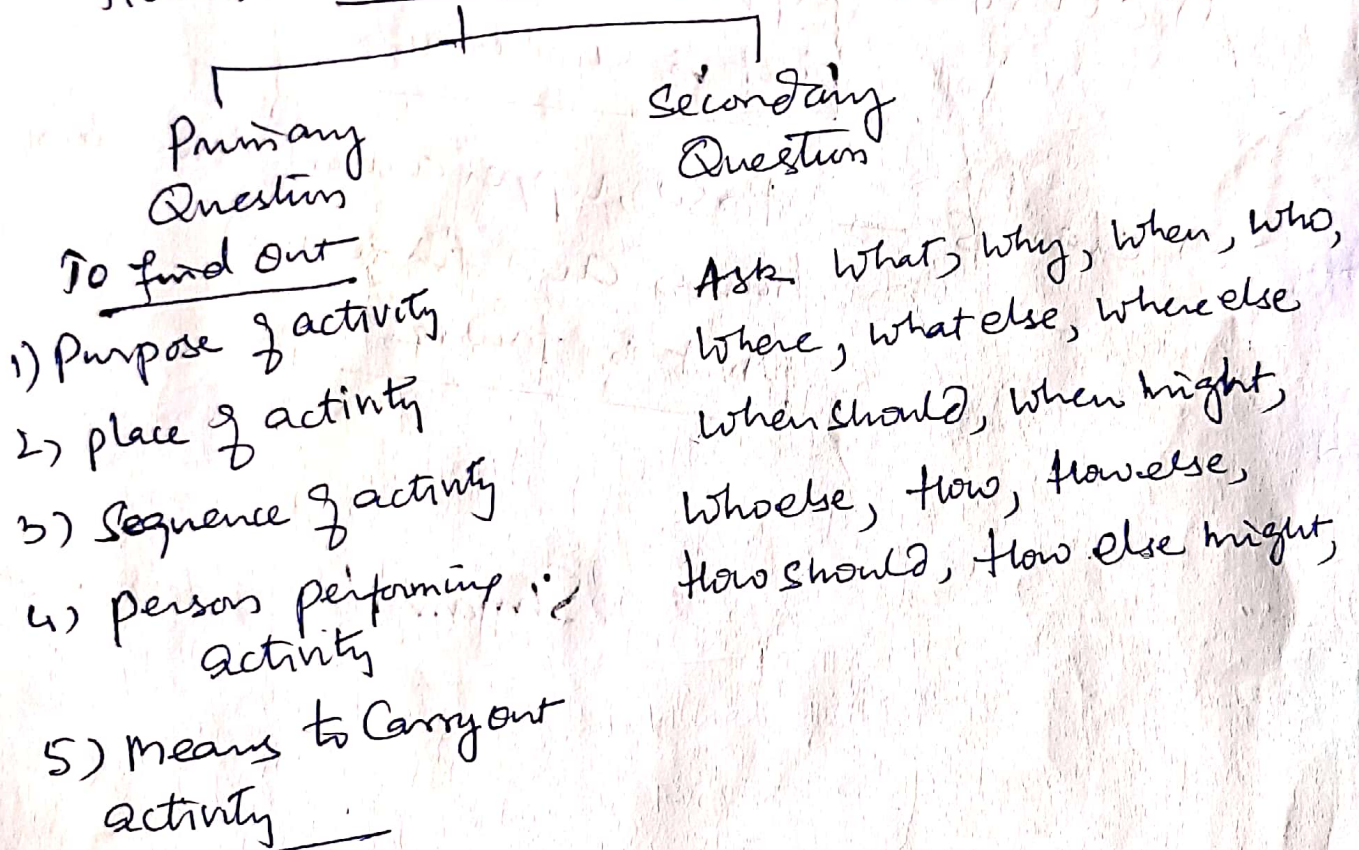 Primary
Question
To find out
1) Purpose of activity
2) place of activity
3) Sequence of activity
4) person performing
activity
5) Means to Carry out
activity
Secondary
Question
Ask What, Why, When, Who,
Where, what else, where else
when should, when might,
Who else, How, How else,
How should, How else might,